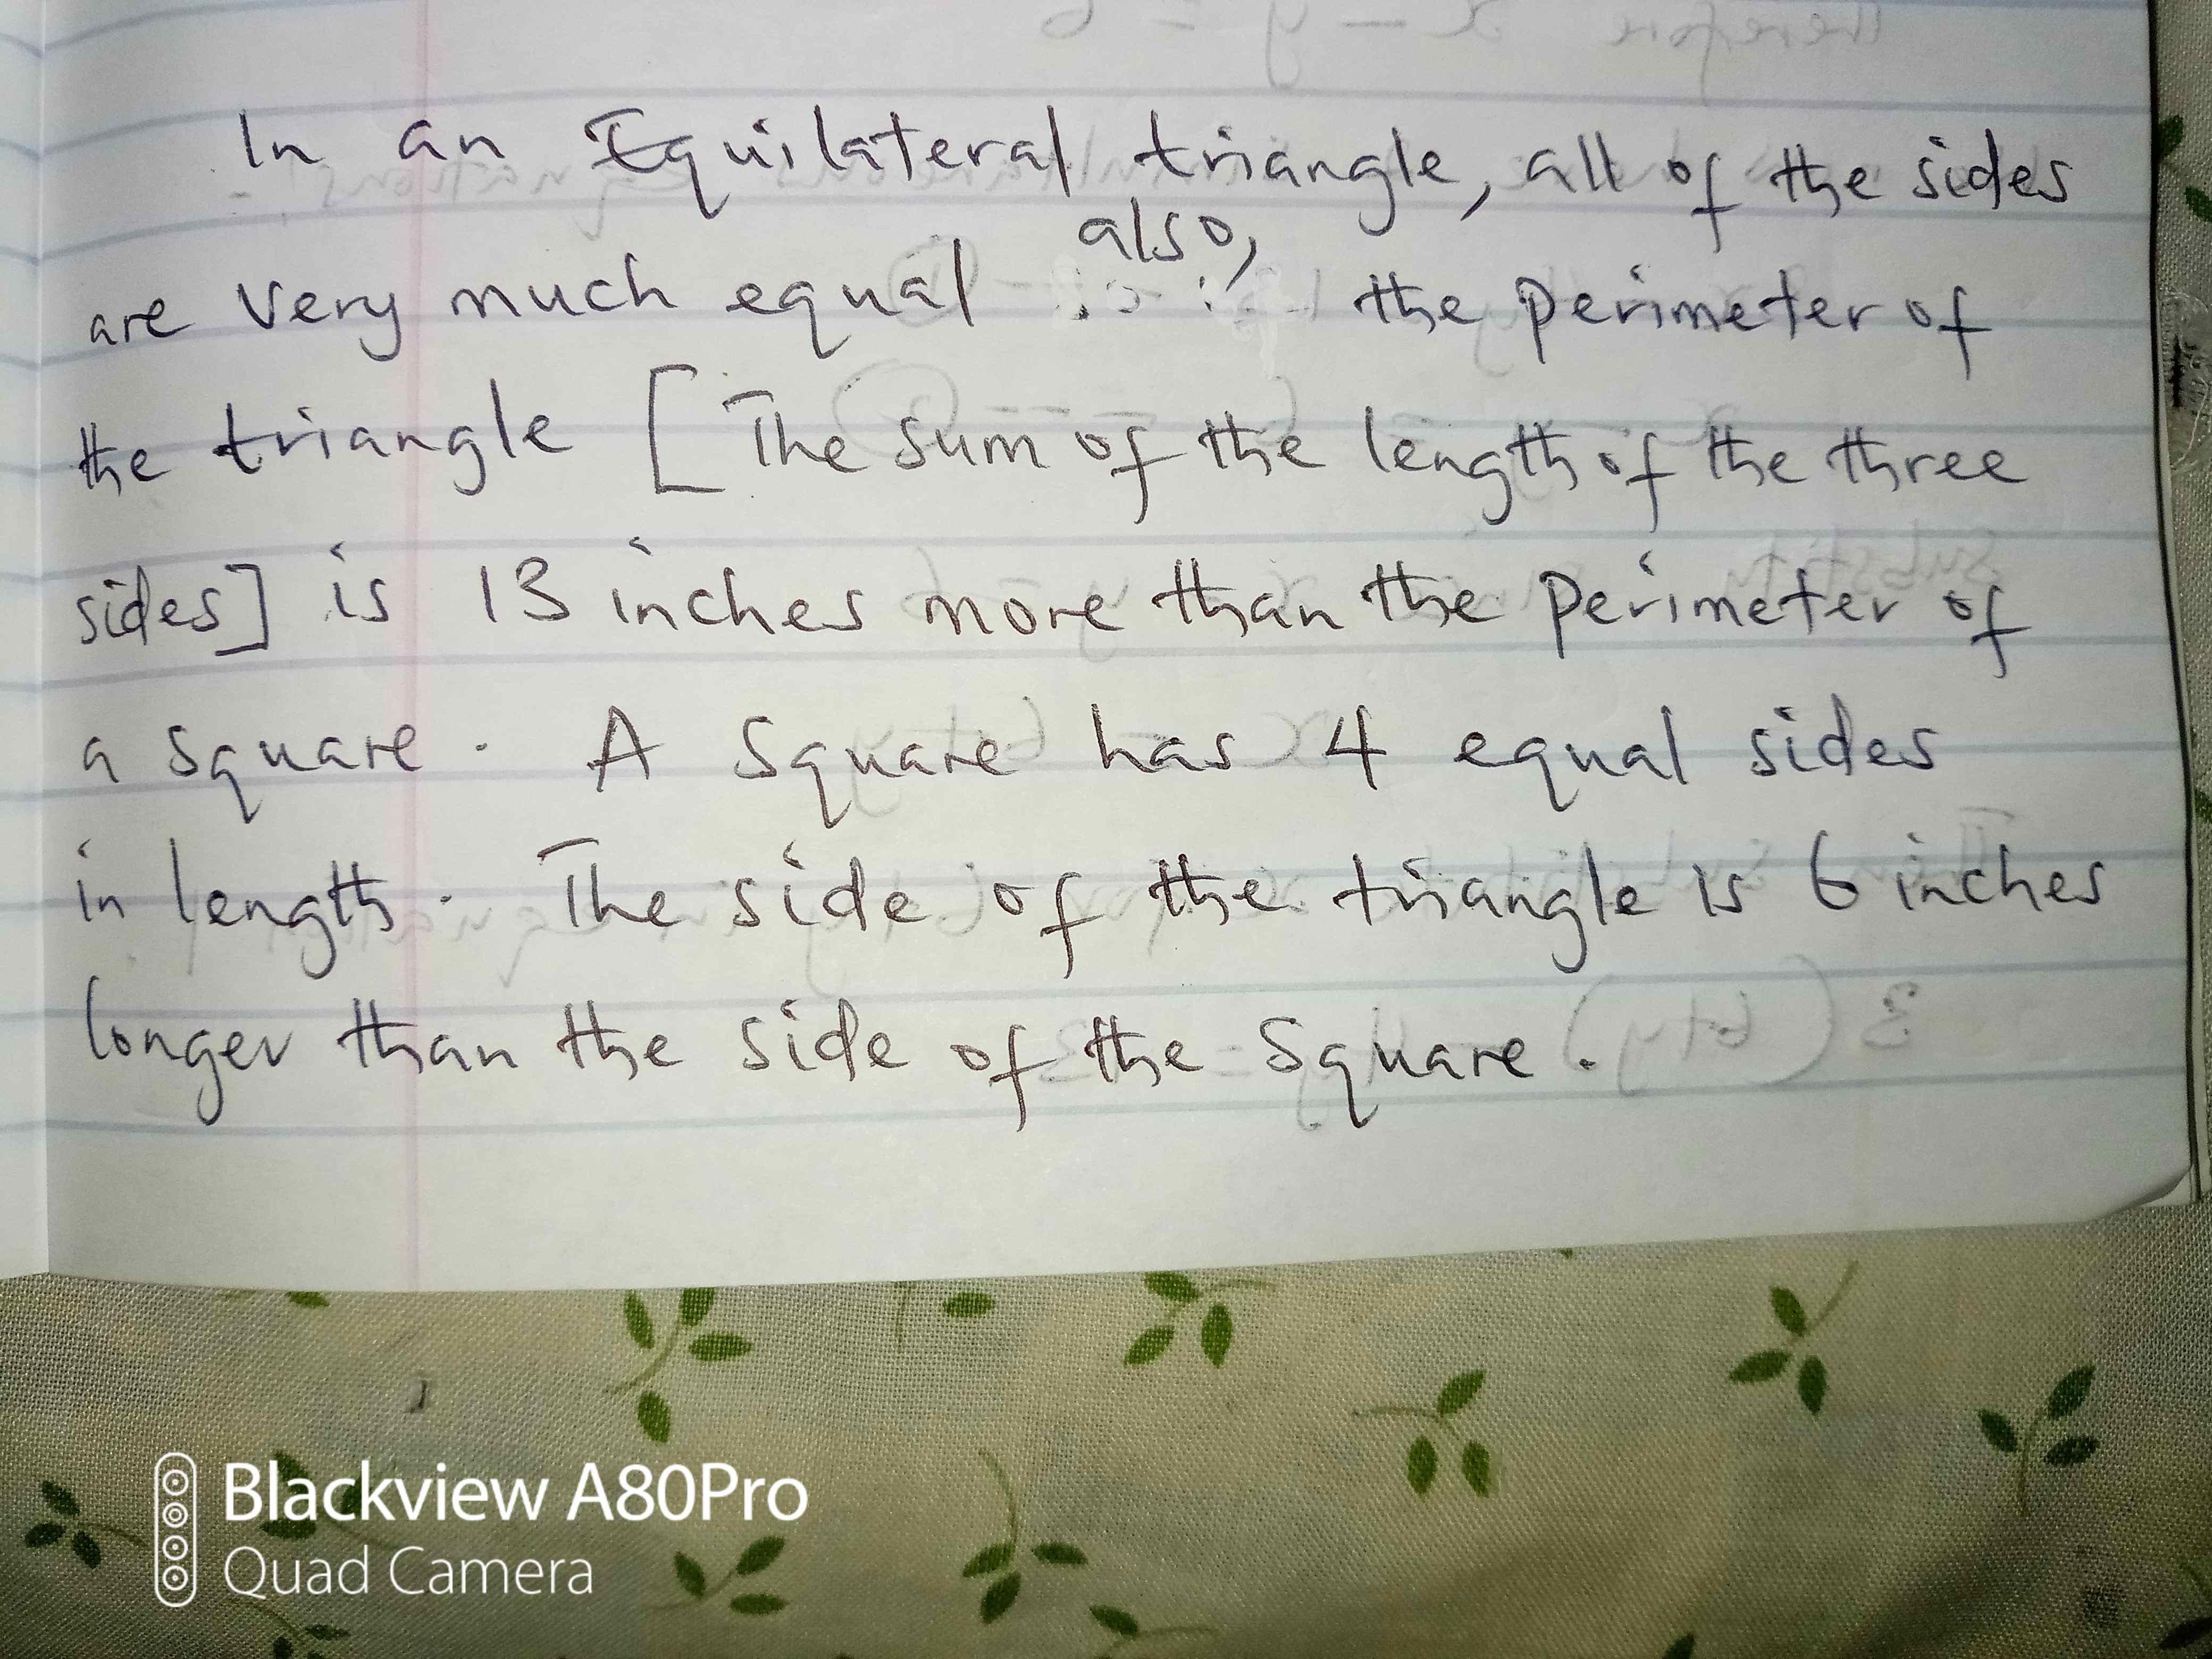 In an Equilateral triangle, all of the sides
are very much equal also, the perimeter of
the triangle [The sum of the length of the three
sides] is 13 inches more than the perimeter of
a square. A square has 4 equal sides
in length. The side of the triangle is 6 inches
longer than the side of the square.
Blackview A80Pro
Quad Camera